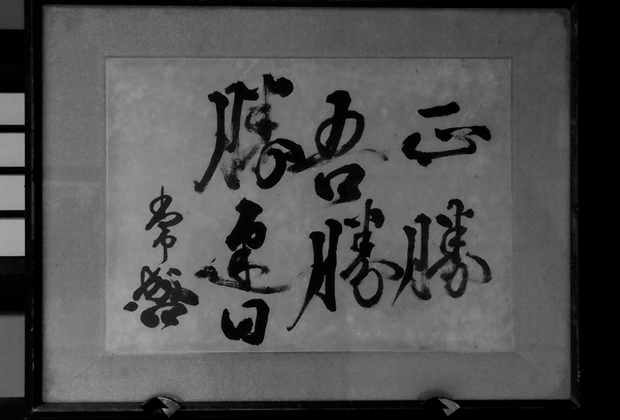 正勝
吾勝
勝速日
常盛